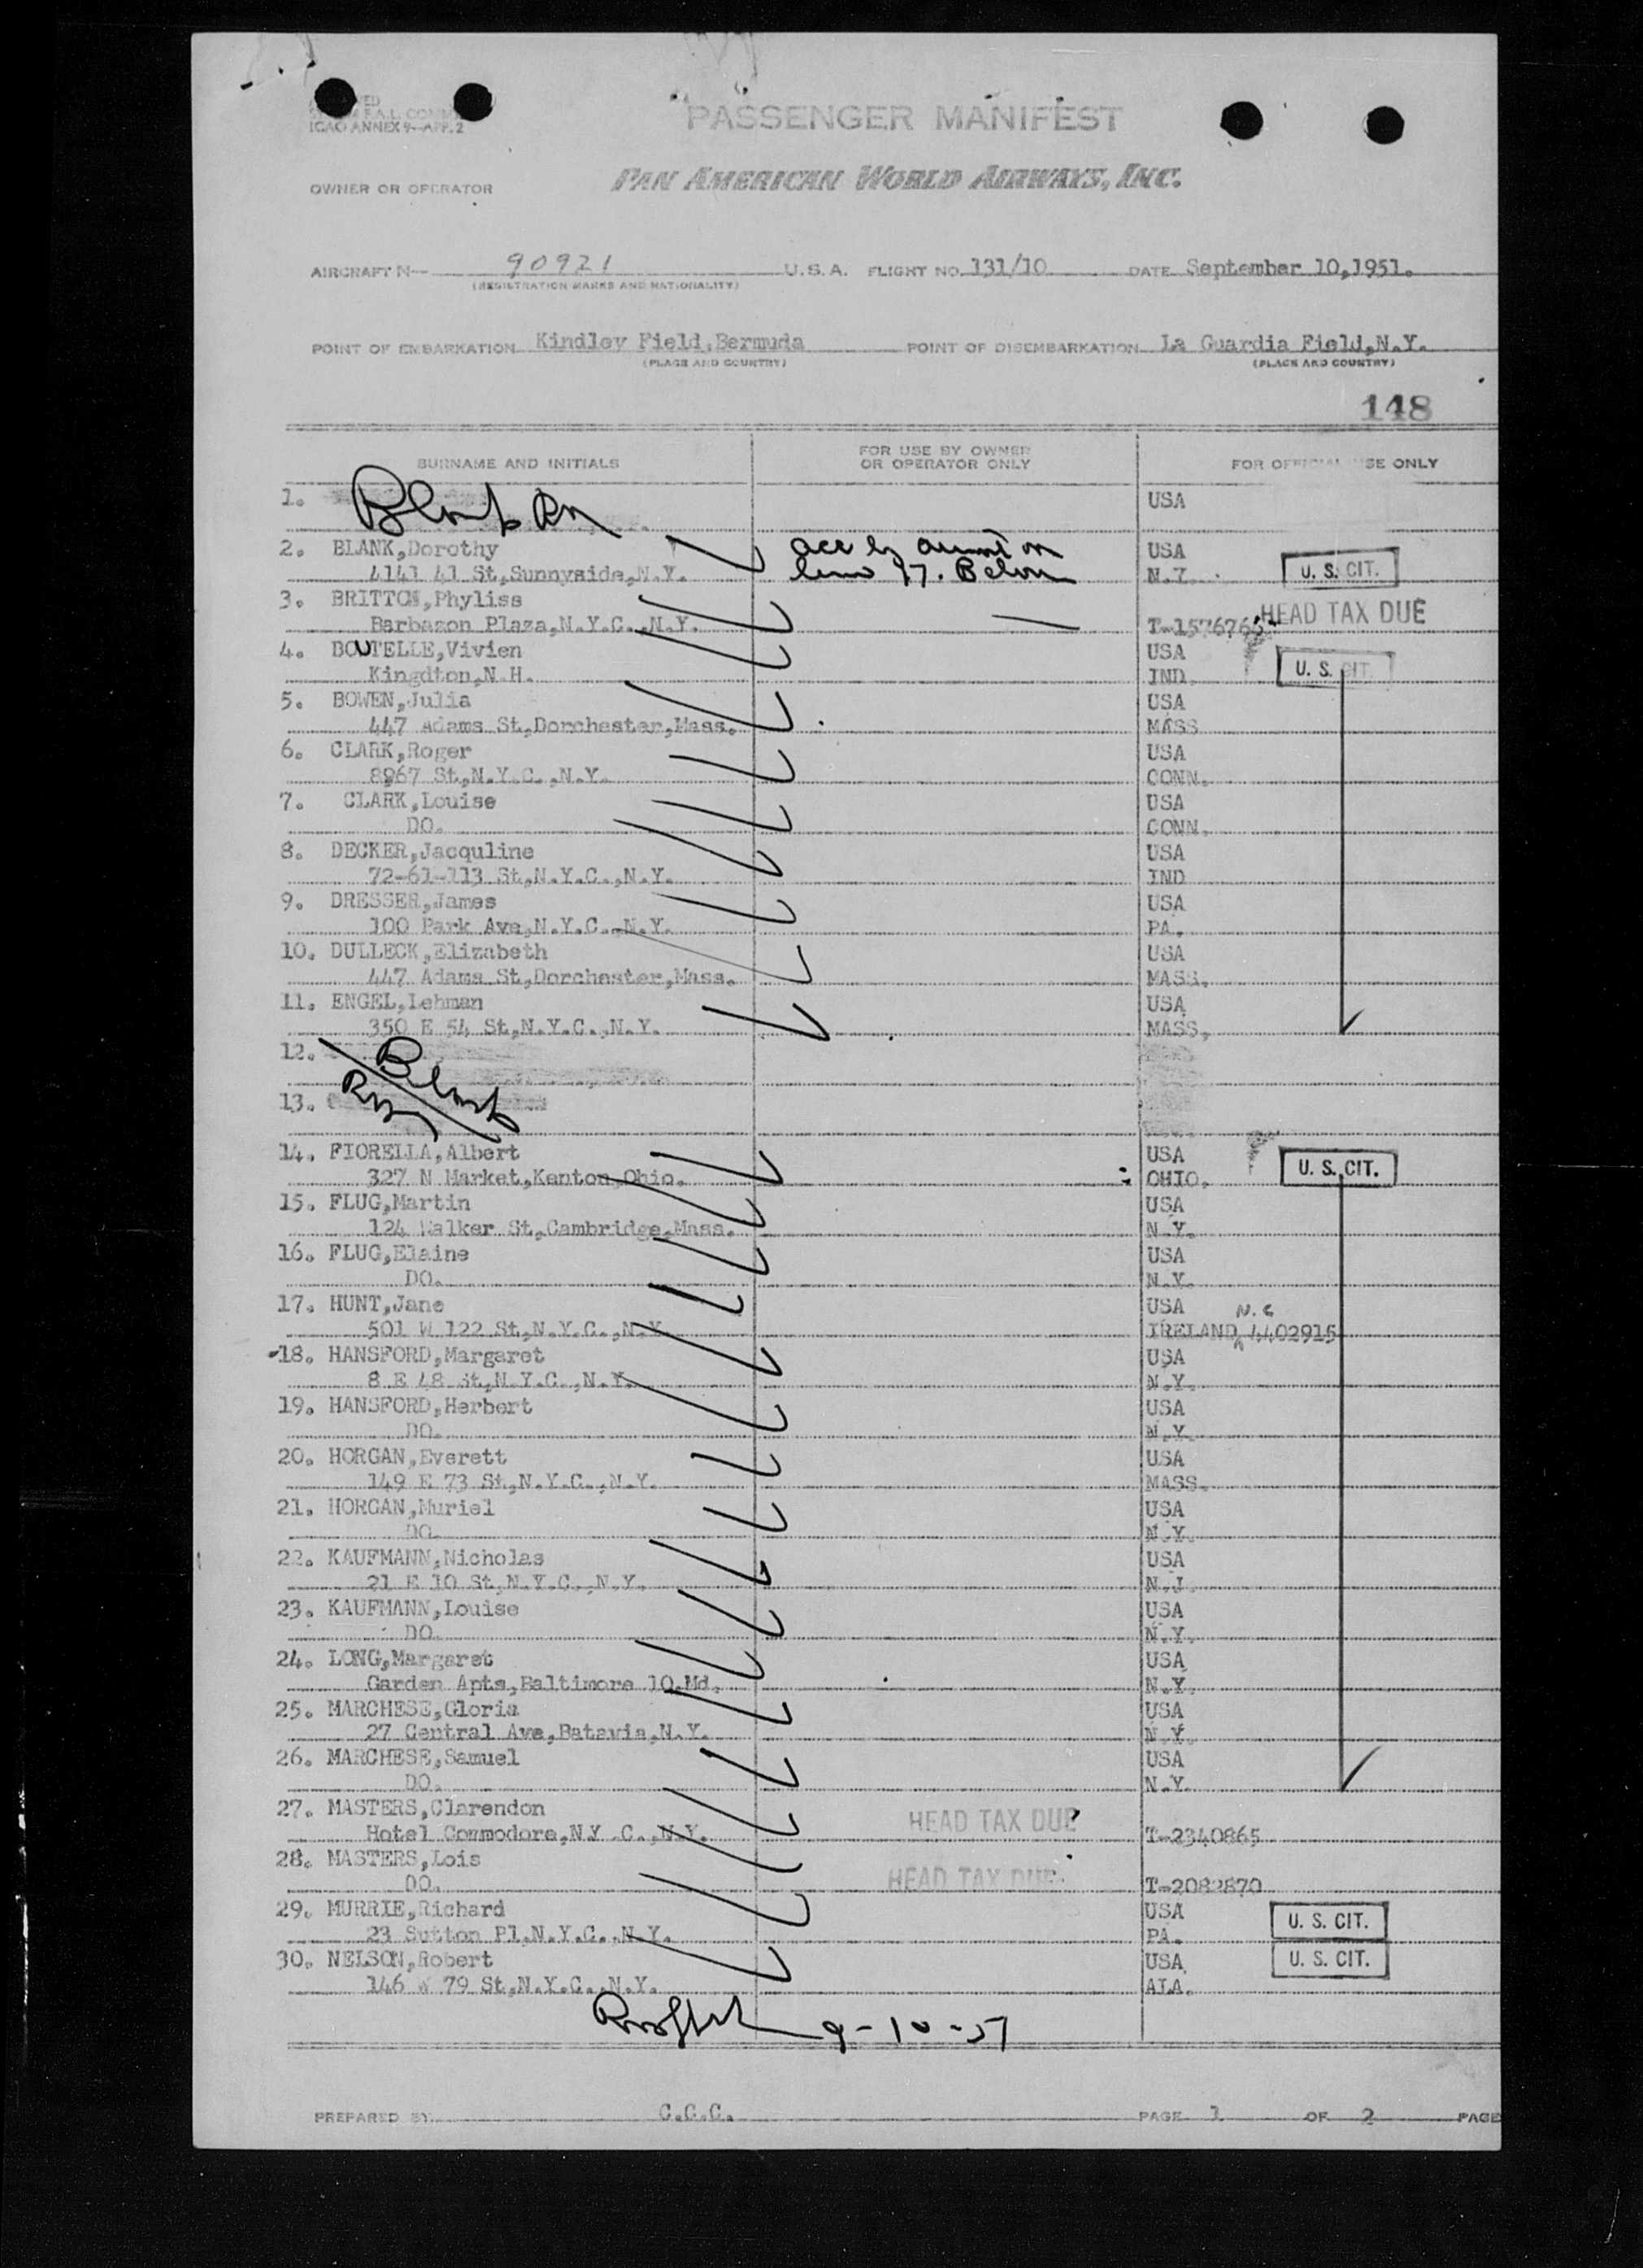 ICAO ANNEX 9—APP. 2
PASSENGER MANIFEST
OWNER OR OPERATOR PAN AMERICAN WORLD AIRWAYS, INC.
AIRCRAFT N— 90921 U.S.A. FLIGHT NO. 131/10 DATE September 10,1951.
(REGISTRATION MARKS AND NATIONALITY)
POINT OF EMBARKATION Kindley Field,Bermuda POINT OF DISEMBARKATION La Guardia Field,N.Y.
(PLACE AND COUNTRY) (PLACE AND COUNTRY)
148
SURNAME AND INITIALS FOR USE BY OWNER OR OPERATOR ONLY FOR OFFICIAL USE ONLY
1. Blank USA
2. BLANK,Dorothy USA
4141 41 St,Sunnyside,N.Y. N.Y. U. S. CIT.
3. BRITTON,Phyliss HEAD TAX DUE
Barbazon Plaza,N.Y.C.,N.Y. T-1576765
4. BOUTELLE,Vivien USA
Kingdton,N.H. IND. U. S. CIT.
5. BOWEN,Julia USA
447 Adams St,Dorchester,Mass. MASS
6. CLARK,Roger USA
8967 St,N.Y.C.,N.Y. CONN.
7. CLARK,Louise USA
DO. CONN.
8. DECKER,Jacquline USA
72-61-113 St,N.Y.C.,N.Y. IND
9. DRESSER,James USA
100 Park Ave,N.Y.C.,N.Y. PA.
10. DULLECK,Elizabeth USA
447 Adams St,Dorchester,Mass. MASS.
11. ENGEL,Lehman USA
350 E 54 St,N.Y.C.,N.Y. MASS.
12. Blank
13.
14. FIORELLA,Albert USA
327 N Market,Kenton,Ohio. OHIO. U. S. CIT.
15. FLUG,Martin USA
124 Walker St,Cambridge,Mass. N.Y.
16. FLUG,Elaine USA
DO. N.Y.
17. HUNT,Jane USA N.C
501 W 122 St,N.Y.C.,N.Y. IRELAND 4402915
18. HANSFORD,Margaret USA
8 E 48 St,N.Y.C.,N.Y. N.Y.
19. HANSFORD,Herbert USA
DO. N.Y.
20. HORGAN,Everett USA
149 E 73 St,N.Y.C.,N.Y. MASS.
21. HORGAN,Muriel USA
DO. N.Y.
22. KAUFMANN,Nicholas USA
21 E 10 St,N.Y.C.,N.Y. N.J.
23. KAUFMANN,Louise USA
DO. N.Y.
24. LONG,Margaret USA
Garden Apts,Baltimore 10,Md. N.Y.
25. MARCHESE,Gloria USA
27 Central Ave,Batavia,N.Y. N.Y.
26. MARCHESE,Samuel USA
DO. N.Y.
27. MASTERS,Clarendon HEAD TAX DUE
Hotel Commodore,N.Y.C.,N.Y. T-2340865
28. MASTERS,Lois HEAD TAX DUE
DO. T-2082870
29. MURRIE,Richard USA U. S. CIT.
23 Sutton Pl,N.Y.C.,N.Y. PA.
30. NELSON,Robert USA U. S. CIT.
146 W 79 St,N.Y.C.,N.Y. ALA.
9-10-51
PREPARED BY C.C.C. PAGE 1 OF 2 PAGE